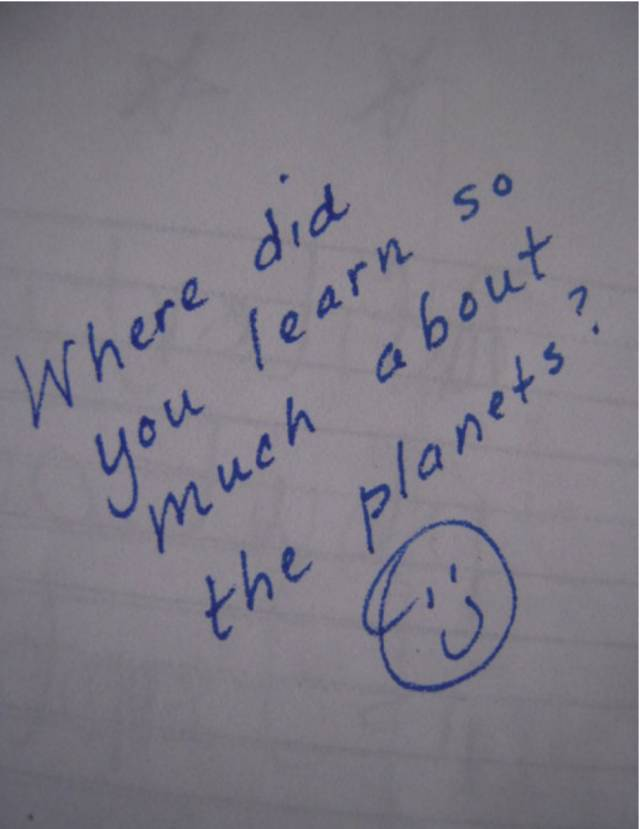 Where did
you learn so
much about
the planets?